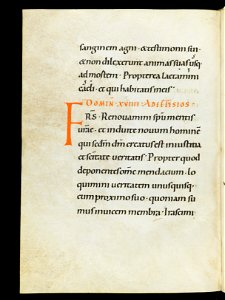 sanguinem agni · & testimonii sui ·
& non dilexerunt animas suas usq;
ad mortem · Propterea laetamini
caeli · et qui habitatis in eis
DOMIN · XVIIII · AD EFESIOS
FRS · Renouamini spu mentis
urae · et induite nouum homine
qui secdm dm creatus est in iustitia
et scitate ueritatis · Propter quod
deponentes ome mendacium · lo
quimini ueritatem unusquisq;
cum proximo suo · quoniam su
mus inuicem membra · Irascimi